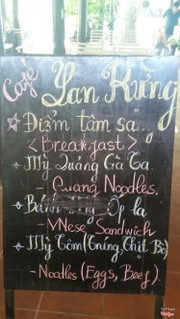 Café
Lan Rừng
Điểm tâm sá..
< Breakfast >
Mỳ Quảng Gà Ta
- Quang Noodles.
Bánh Ốp la
- VNese Sandwich
Mỳ Tôm (Trứng, Thịt Bò)
- Noodles (Eggs, Beef)